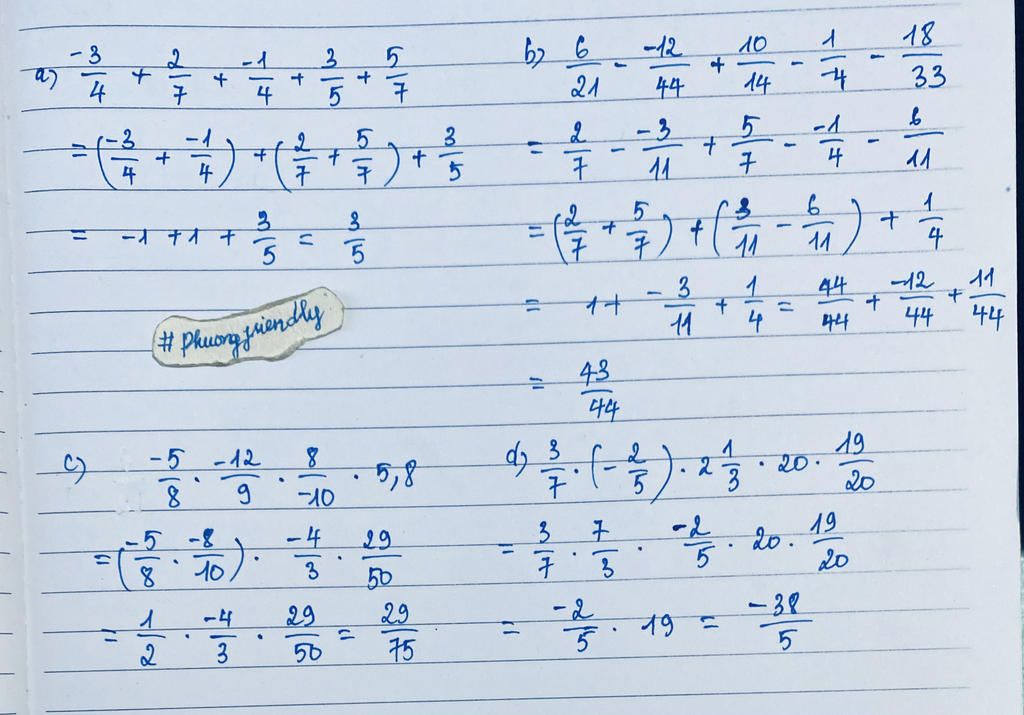 a) -3/4 + 2/7 + -1/4 + 3/5 + 5/7
= (-3/4 + -1/4) + (2/7 + 5/7) + 3/5
= -1 + 1 + 3/5 = 3/5
#phuongfriendly
b) 6/21 - -12/44 + 10/14 - 1/-4 - 18/33
= 2/7 - -3/11 + 5/7 - -1/4 - 6/11
= (2/7 + 5/7) + (3/11 - 6/11) + 1/4
= 1 + -3/11 + 1/4 = 44/44 + -12/44 + 11/44
= 43/44
c) -5/8 . -12/9 . 8/-10 . 5,8
= (-5/8 . -8/10) . -4/3 . 29/50
= 1/2 . -4/3 . 29/50 = 29/75
d) 3/7 . (-2/5) . 2 1/3 . 20 . 19/20
= 3/7 . 7/3 . -2/5 . 20 . 19/20
= -2/5 . 19 = -38/5